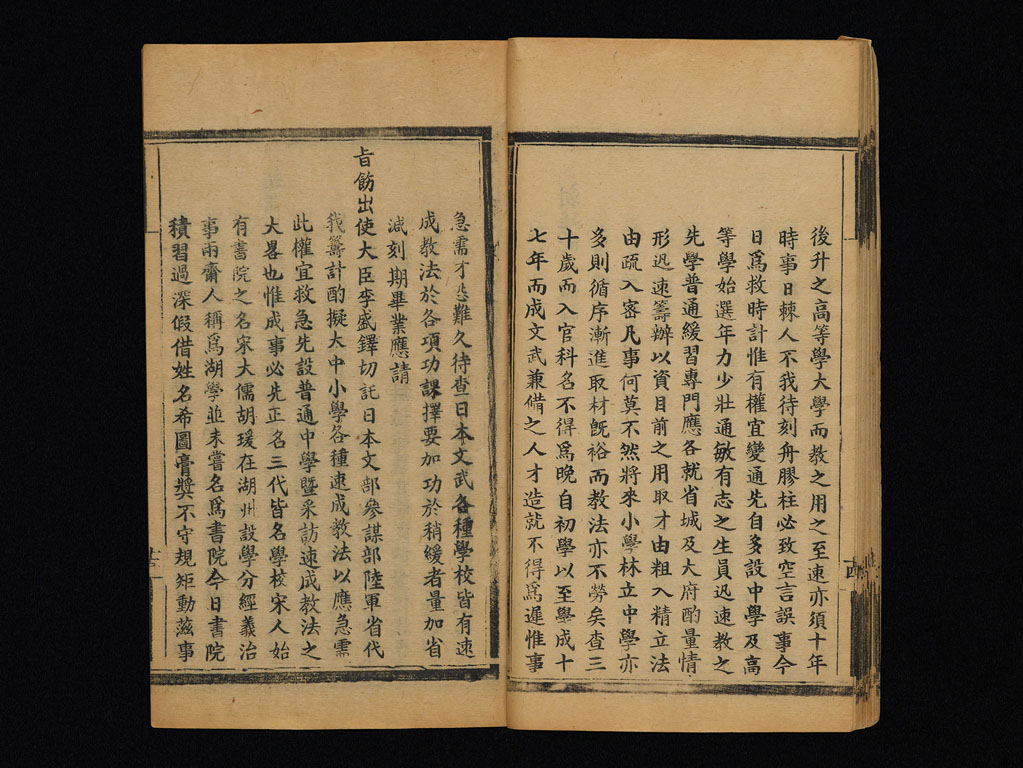 後升之高等學大學而教之用之至速亦須十年
時事日棘人不我待刻舟膠柱必致空言誤事今
日爲救時計惟有權宜變通先自多設中學及高
等學始選年力少壯通敏有志之生員迅速教之
先學普通緩習專門應各就省城及大府酌量情
形迅速籌辦以資目前之用取才由粗入精立法
由疏入密凡事何莫不然將來小學林立中學亦
多則循序漸進取材既裕而教法亦不勞矣查三
十歲而入官科名不得爲晚自初學以至學成十
七年而成文武兼備之人才造就不得爲遲惟事
急需才恐難久待查日本文武各種學校皆有速
成教法於各項功課擇要加功於稍緩者量加省
減刻期畢業應請
旨飭出使大臣李盛鐸切託日本文部參謀部陸軍省代
我籌計酌擬大中小學各種速成教法以應急需
此權宜救急先設普通中學暨采訪速成教法之
大畧也惟成事必先正名三代皆名學校宋人始
有書院之名宋大儒胡瑗在湖州設學分經義治
事兩齋人稱爲湖學並未嘗名爲書院今日書院
積習過深假借姓名希圖膏獎不守規矩動滋事